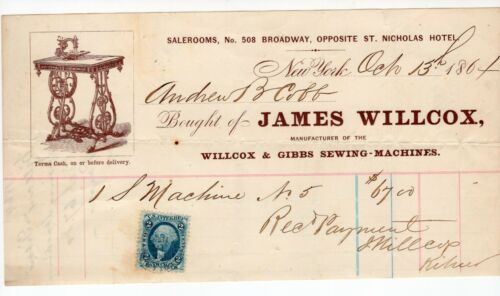 SALEROOMS, No. 508 BROADWAY, OPPOSITE ST. NICHOLAS HOTEL.
New York Oct 13th 1864
Andrew B Cobb
Bought of JAMES WILLCOX,
MANUFACTURER OF THE
WILLCOX & GIBBS SEWING-MACHINES.
Terms Cash, on or before delivery.
1 S Machine No 5 $67 00
Recd Payment
J Willcox